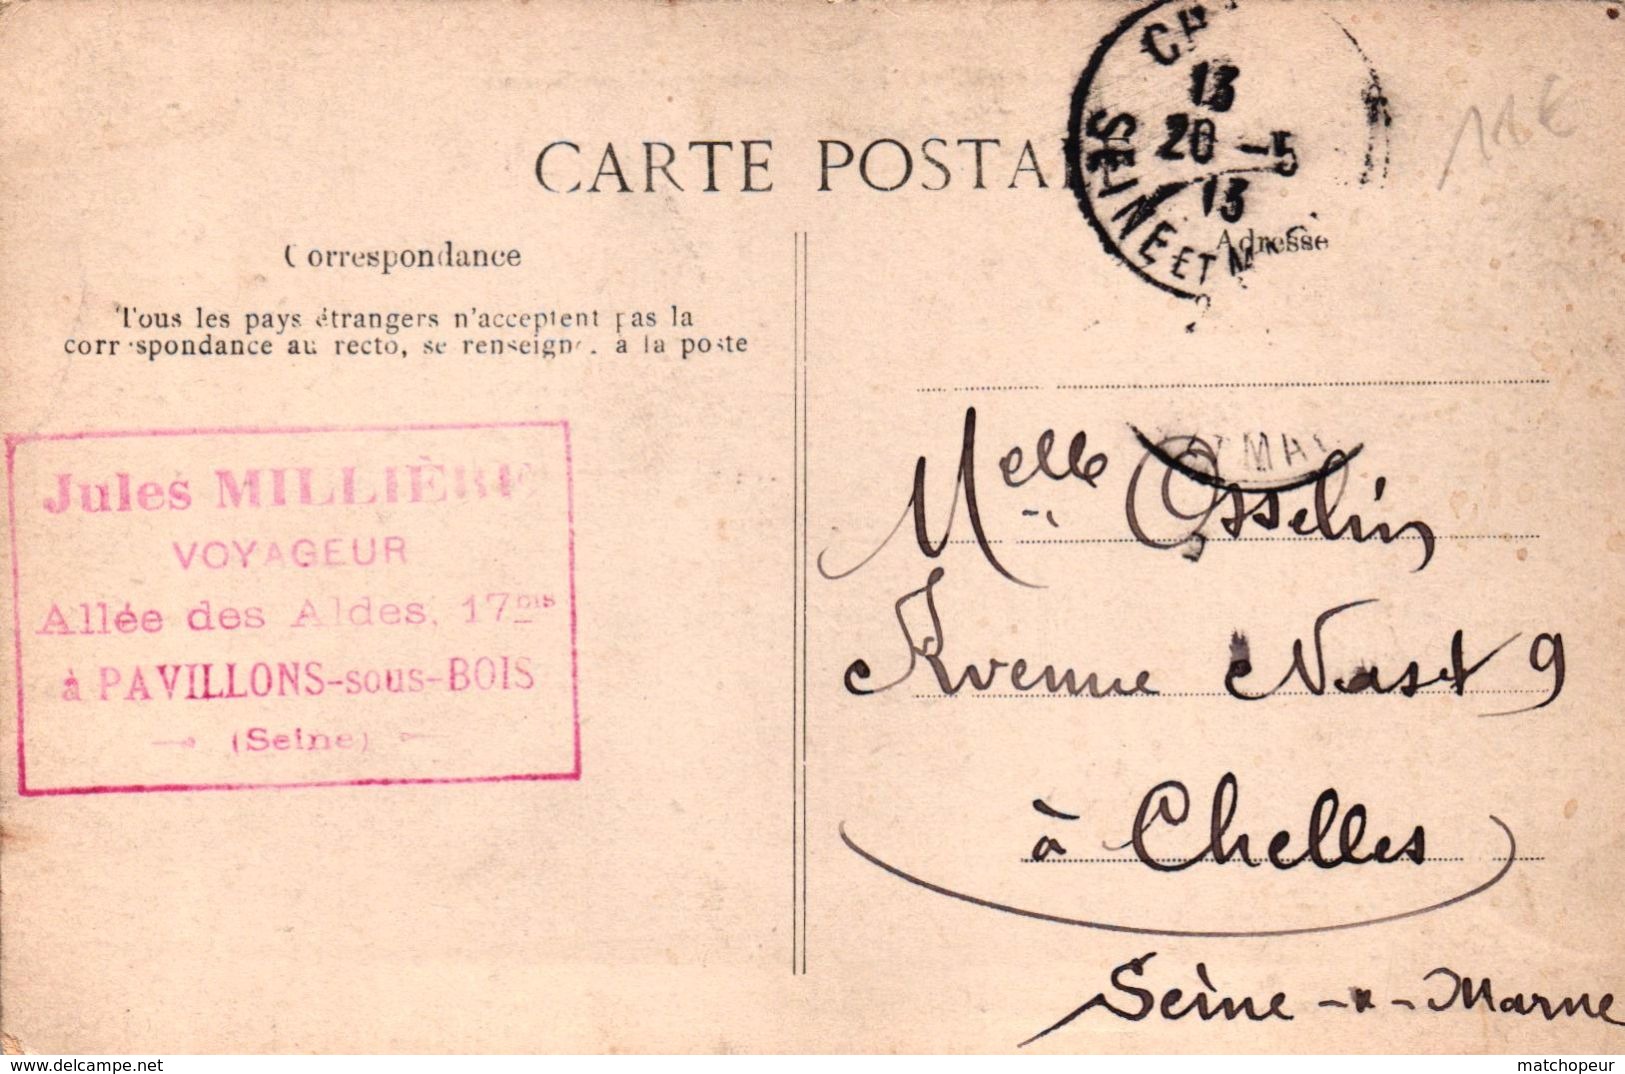 CARTE POSTA
13
20 -5
13
SEINE ET M
Correspondance
Adresse
Tous les pays étrangers n'acceptent pas la
correspondance au recto, se renseigner à la poste
Jules MILLIÈRE
VOYAGEUR
Allée des Aldes, 17bis
à PAVILLONS-sous-BOIS
(Seine)
Melle Osselin
Avenue Nast 9
à Chelles
Seine-&-Marne
11€
delcampe.net
matchopeur